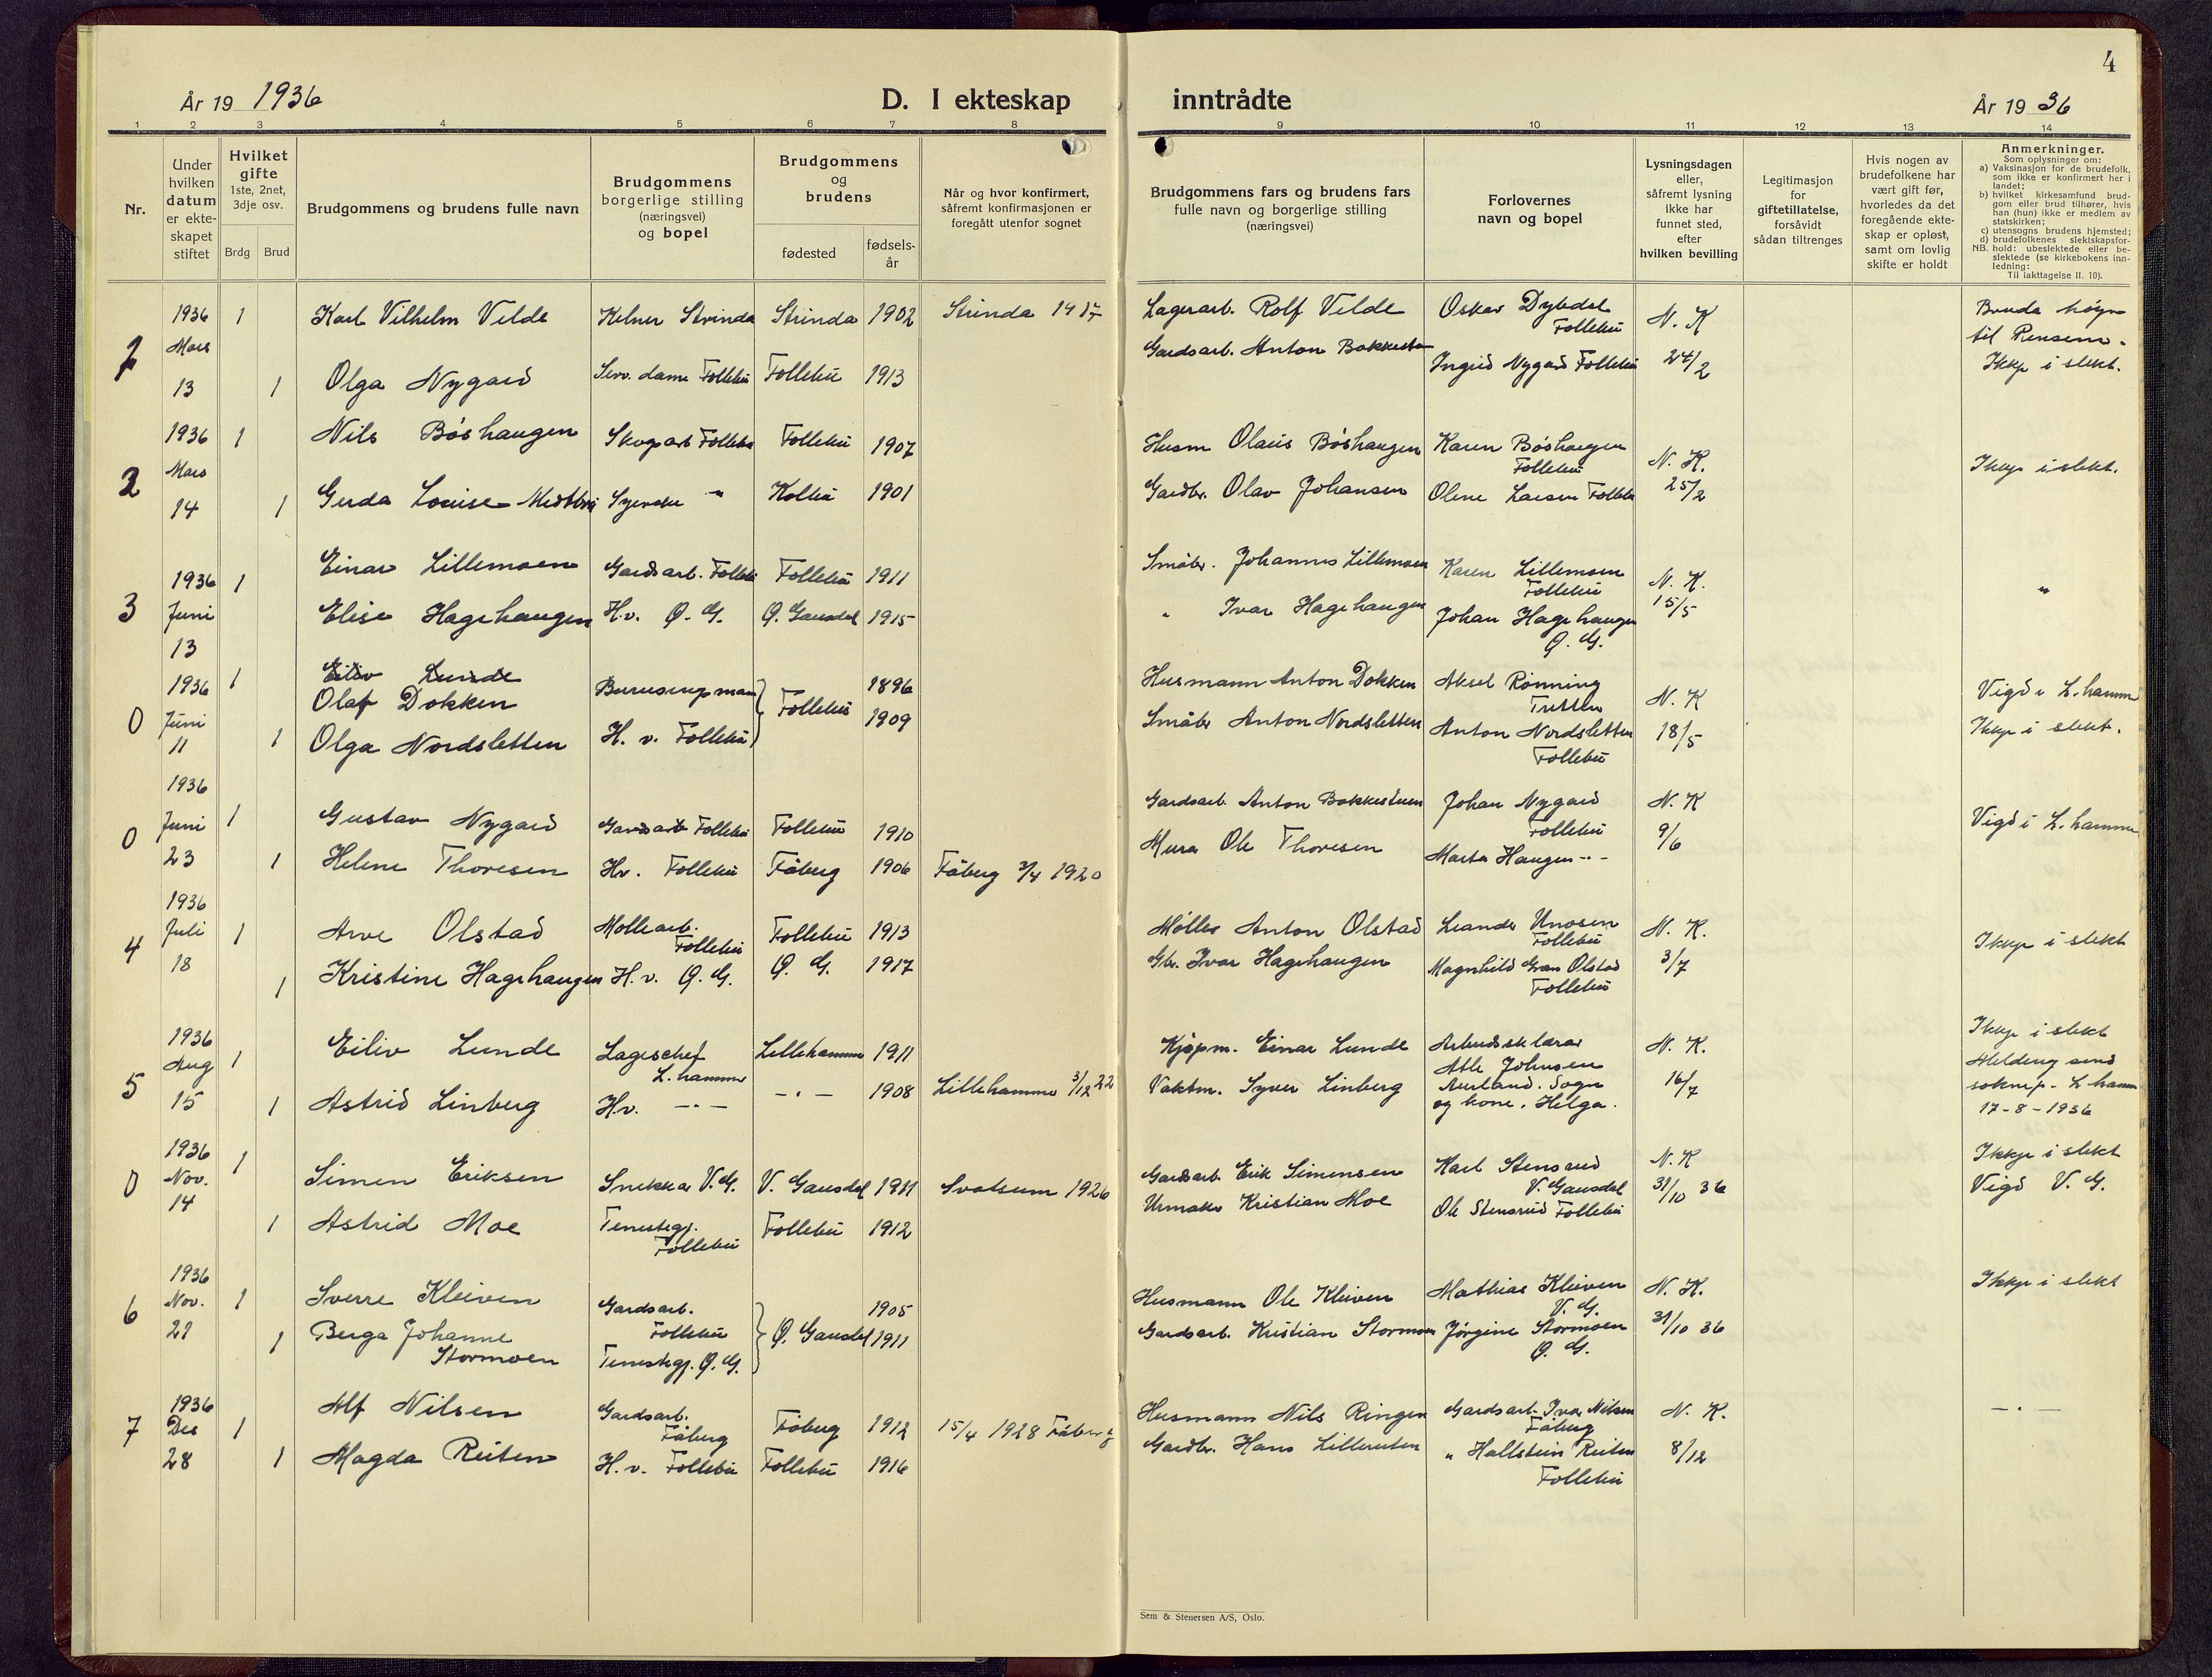 4
År 19 1936
D. I ekteskap inntrådte
År 19 36
1 2 3 4 5 6 7 8 9 10 11 12 13 14
Nr.
Under hvilken datum er ekteskapet stiftet
Hvilket gifte
1ste, 2net, 3dje osv.
Brdg Brud
Brudgommens og brudens fulle navn
Brudgommens borgerlige stilling (næringsvei) og bopel
Brudgommens og brudens
fødested
fødsels-år
Når og hvor konfirmert, såfremt konfirmasjonen er foregått utenfor sognet
Brudgommens fars og brudens fars fulle navn og borgerlige stilling (næringsvei)
Forlovernes navn og bopel
Lysningsdagen eller, såfremt lysning ikke har funnet sted, efter hvilken bevilling
Legitimasjon for giftetillatelse, forsåvidt sådan tiltrenges
Hvis nogen av brudefolkene har vært gift før, hvorledes da det foregående ekteskap er opløst, samt om lovlig skifte er holdt
Anmerkninger.
Som oplysninger om:
a) Vaksinasjon for de brudefolk, som ikke er konfirmert her i landet;
b) hvilket kirkesamfund brudgom eller brud tilhører, hvis han (hun) ikke er medlem av statskirken;
c) utensogns brudens hjemsted;
d) brudefolkenes slektskapsforhold: ubeslektede eller beslektede (se kirkebokens innledning:
NB.
Til iakttagelse II. 10).
1 1936 Mars 13
1 Karl Vilhelm Velde Kelner Strinda Strinda 1902 Strinda 1917 Lagerarb. Rolf Velde Oskar Dybdal Follebu N. K 24/2 Bruda høyr til Pinsem. Ikkje i slekt.
1 Olga Nygard Serv. dame Follebu Follebu 1913 Gardsarb. Anton Bakkestu Ingrid Nygard Follebu
2 1936 Mars 14
1 Nils Bøshaugen Skogsarb Follebu Follebu 1907 Husm Olaus Bøshaugen Karen Bøshaugen Follebu N. K. 25/2 Ikkje i slekt.
1 Gerda Louise Medtbø Syerske " Kolbu 1901 Gardbr. Olav Johansen Olene Larsen Follebu
3 1936 Juni 13
1 Einar Lillemoen Gardsarb. Follebu Follebu 1911 Småbr. Johannes Lillemoen Karen Lillemoen Follebu N. K. 15/5 "
Elise Hagehaugen H.v. Ø. G. Ø. Gausdal 1915 " Ivar Hagehaugen Johan Hagehaugen Ø. G.
0 1936 Juni 11
1 Eiliv Lunde
Olaf Dokken Bureisingsmann Follebu 1896 Husmann Anton Dokken Aksel Rønning Tretten N. K 18/5 Vigd i L.hammer Ikkje i slekt.
1 Olga Nordsletten H. v. Follebu 1909 Småbr Anton Nordsletten Anton Nordsletten Follebu
0 1936 Juni 23
1 Gustav Nygard Gardsarb Follebu Follebu 1910 Gardsarb. Anton Bakkestuen Johan Nygard Follebu N. K 9/6 Vigd i L.hammer
1 Helene Thoresen Hv. Follebu Fåberg 1906 Fåberg 3/4 1920 Murar Ole Thoresen Marta Haugen -"-
4 1936 Juli 18
1 Arve Olstad Møllearb. Follebu Follebu 1913 Møller Anton Olstad Leander Unosen Follebu N. K. 3/7 Ikkje i slekt
1 Kristine Hagehaugen H. v. Ø. G. Ø. G. 1917 Gbr. Ivar Hagehaugen Magnhild Gran Olstad Follebu
5 1936 Aug 15
1 Eiliv Lunde Lagerschef L.hammer Lillehammer 1911 Kjøpm. Einar Lunde Arbeidsklærar Atle Johnsen Aurland. Sogn og kone, Helga. N. K. 16/7 Ikkje i slekt Melding send soknep. L.hamm 17-8-1936
1 Astrid Linberg Hv. -"- -"- 1908 Lillehammer 3/12 22 Vaktm. Syver Linberg
0 1936 Nov. 14
1 Simen Eriksen Snekkar V.G. V. Gausdal 1911 Svatsum 1926 Gardsarb. Erik Simensen Karl Stensrud V. Gausdal N. K 31/10 36 Ikkje i slekt Vigd V. G.
1 Astrid Moe Tenestegj. Follebu Follebu 1912 Urmaker Kristian Moe Ole Stensrud Follebu
6 1936 Nov. 21
1 Sverre Kleiven Gardsarb. Follebu Ø. Gausdal 1905 Husmann Ole Kleiven Mathias Kleiven V. G. N. K. 31/10 36 Ikkje i slekt
1 Berga Johanne Stormoen Tenestegj. Ø. G. 1911 Gardsarb. Kristian Stormoen Jørgine Stormoen Ø. G.
7 1936 Des 28
1 Alf Nilsen Gardsarb. Fåberg Fåberg 1912 15/4 1928 Fåberg Husmann Nils Ringen Gardsarb. Ivar Nilsen Fåberg N. K. 8/12 -"-
1 Magda Reiten H. v. Follebu Follebu 1916 Gardbr. Hans Lillereiten " Hallstein Reiten Follebu
Sem & Stenersen A/S, Oslo.